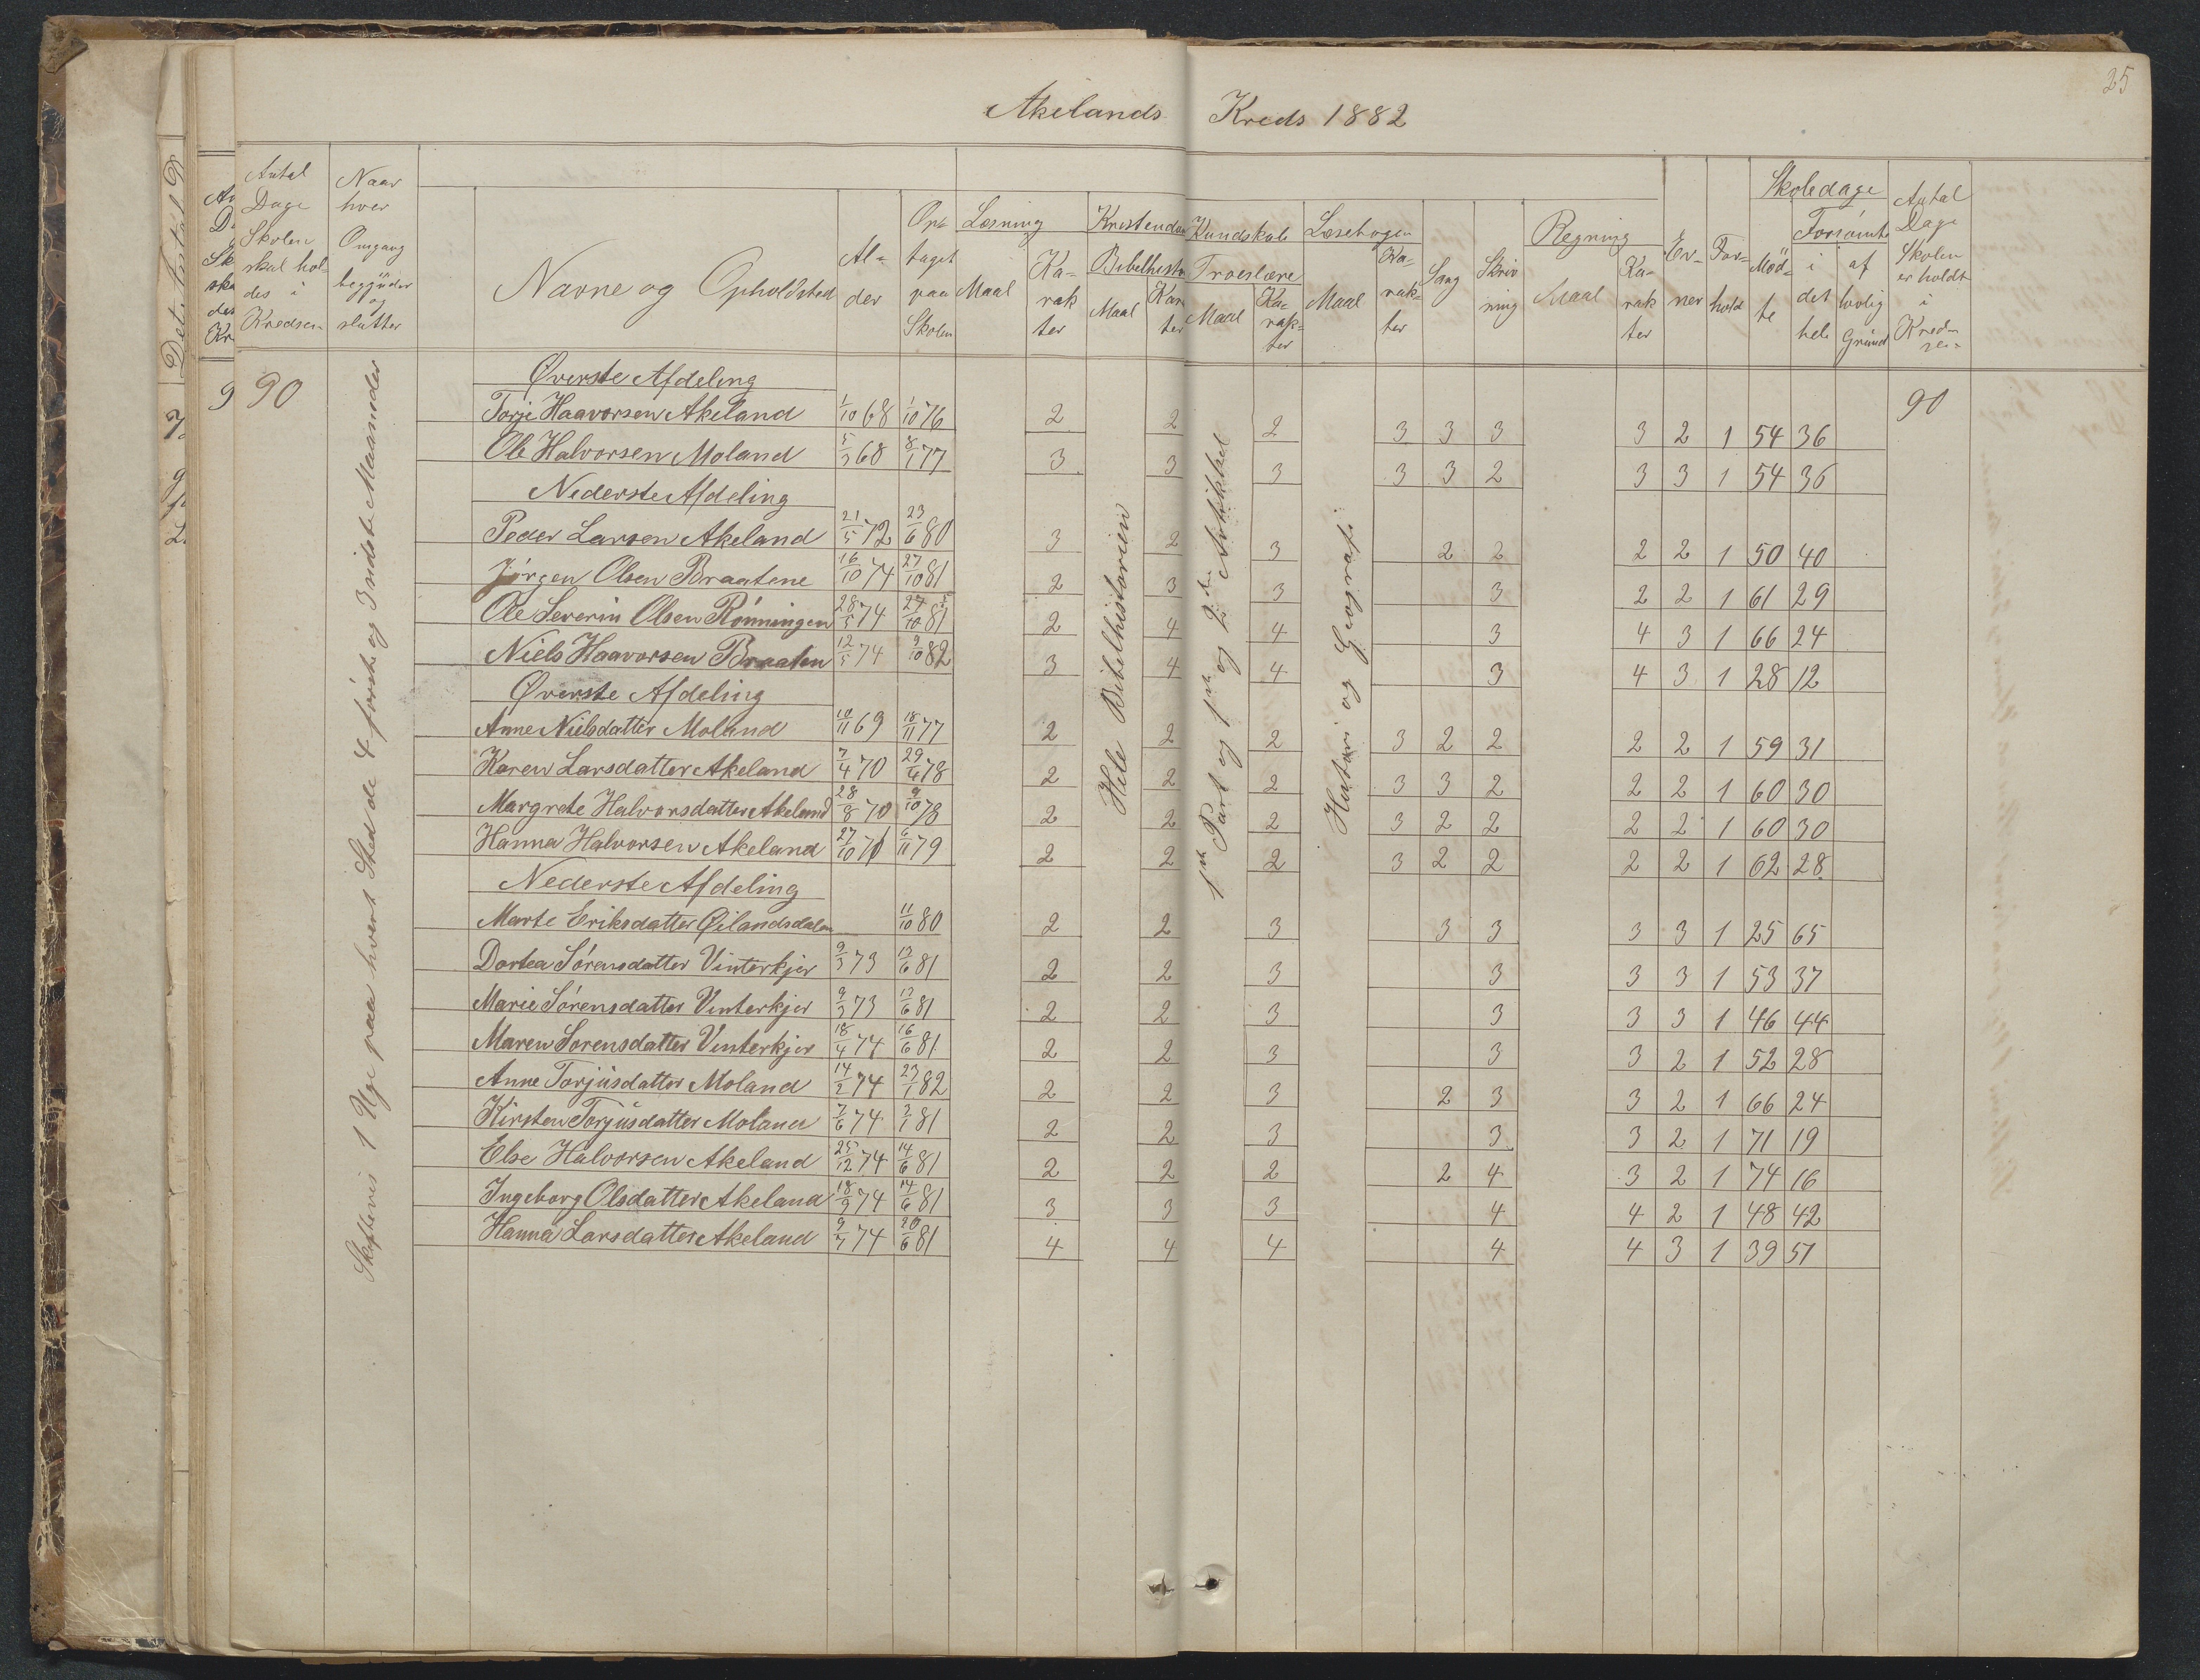 25
Akelands Kreds 1882
Antal Dage Skolen skal hol- des i Kredsen
Naar hver Omgang begynder og slutter
Navne og Opholdsted
Al- der
Op- taget paa Skolen
Læsning
Maal
Ka- rak ter
Kristendoms Kundskab
Bibelhisto
Maal
Kar ter
Troeslære
Maal
Ka- rak- ter
Læsebogen
Maal
Ka- rak- ter
Sang
Skriv ning
Regning
Maal
Ka- rak ter
Ev- ner
For- hold
Skoledage
Mød- te
Forsømte
i det hele
af lovlig Grund
Antal Dage Skolen er holdt i Kred- sen
90
90
Skiftevis 1 Uge paa hvert Sted de 4 første og 3 sidste Maaneder
Hele Bibelhistorien
1ste Part og 1ste og 2den Artikkel
Histori og Geografi
Øverste Afdeling
Torje Haavorsen Akeland 1/10 68 1/10 76 2 2 2 3 3 3 3 2 1 54 36
Ole Halvorsen Moland 5/3 68 8/1 77 3 3 3 3 3 2 3 3 1 54 36
Nederste Afdeling
Peder Larsen Akeland 21/5 72 23/6 80 3 2 3 2 2 2 2 1 50 40
Jørgen Olsen Braatene 16/10 74 27/10 81 2 3 3 3 2 2 1 61 29
Ole Severin Olsen Rønningen 28/5 74 27/10 81 2 4 4 3 4 3 1 66 24
Niels Haavorsen Braaten 12/5 74 9/10 82 3 4 4 3 4 3 1 28 12
Øverste Afdeling
Anne Nielsdatter Moland 10/11 69 18/11 77 2 2 2 3 2 2 2 2 1 59 31
Karen Larsdatter Akeland 7/4 70 29/4 78 2 2 2 3 3 2 2 2 1 60 30
Margrete Halvorsdatter Akeland 28/8 70 9/10 78 2 2 2 3 2 2 2 2 1 60 30
Hanna Halvorsen Akeland 27/10 71 6/11 79 2 2 2 3 2 2 2 2 1 62 28
Nederste Afdeling
Marte Eriksdatter Øilandsdalen 11/10 80 2 2 3 3 3 3 3 1 25 65
Dortea Sørensdatter Vinterkjer 9/3 73 13/6 81 2 2 3 3 3 3 1 53 37
Marie Sørensdatter Vinterkjer 9/3 73 13/6 81 2 2 3 3 3 3 1 46 44
Maren Sørensdatter Vinterkjer 18/4 74 16/6 81 2 2 3 3 3 2 1 52 28
Anne Torjusdatter Moland 14/2 74 23/1 82 2 2 3 2 3 3 2 1 66 24
Kirsten Torjusdatter Moland 7/6 74 3/1 81 2 2 3 3 3 2 1 71 19
Else Halvorsen Akeland 25/12 74 14/6 81 2 2 2 2 4 3 2 1 74 16
Ingeborg Olsdatter Akeland 18/9 74 14/6 81 3 3 3 4 4 2 1 48 42
Hanna Larsdatter Akeland 9/7 74 20/6 81 4 4 4 4 4 3 1 39 51